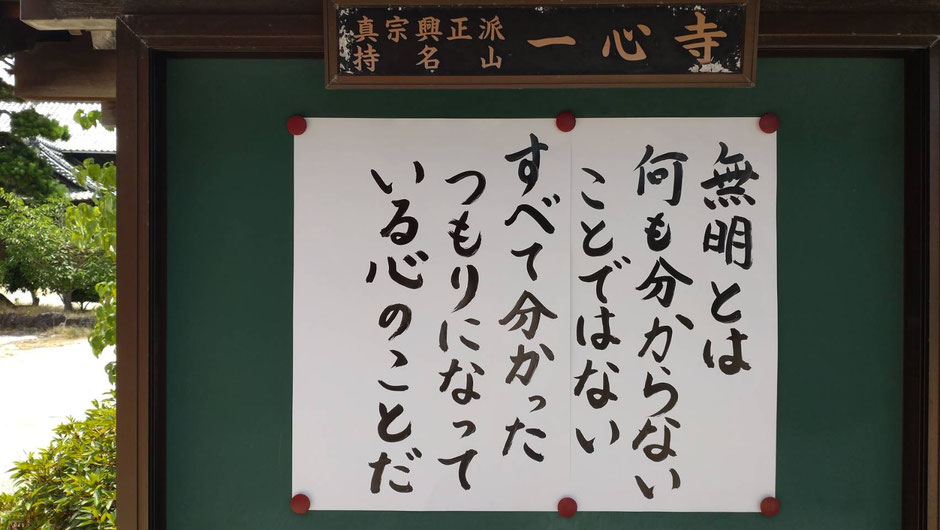 真宗興正派
持名山
一心寺
無明とは
何も分からない
ことではない
すべて分かった
つもりになって
いる心のことだ